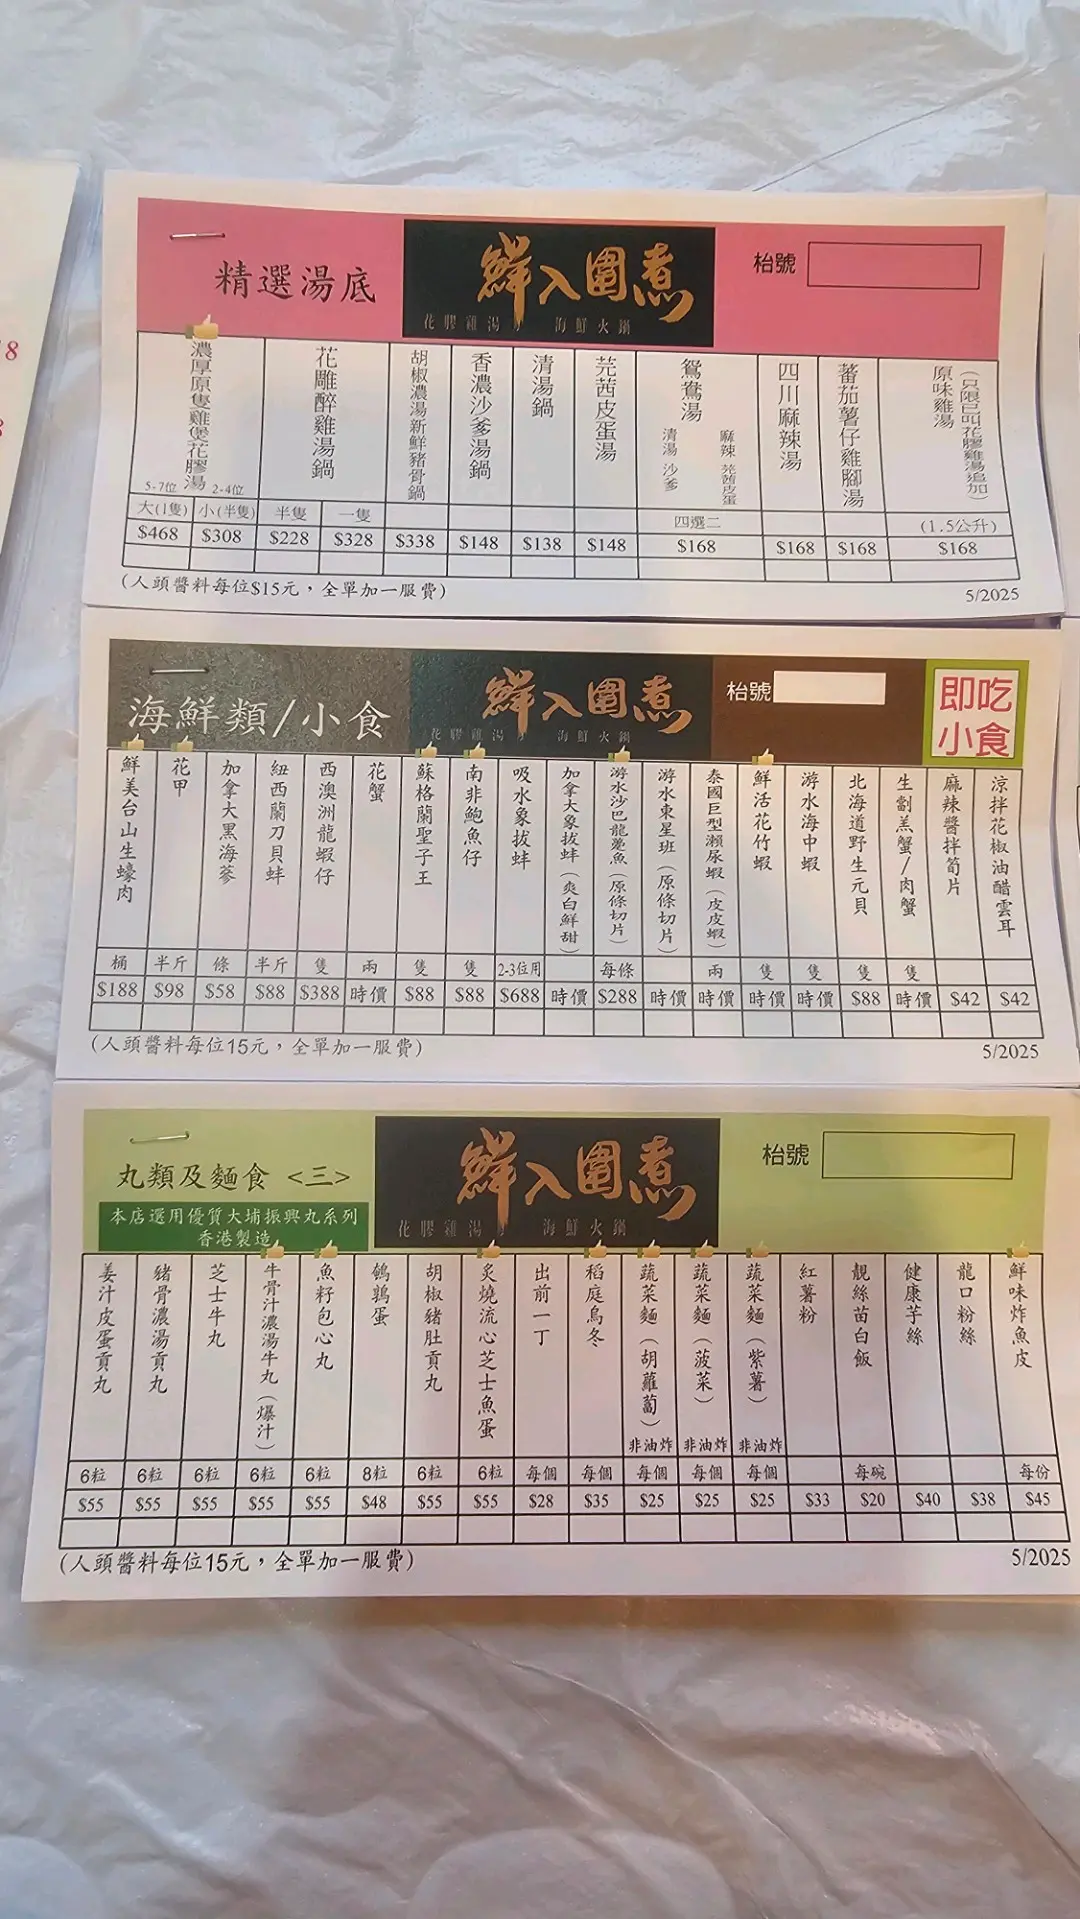 8
8
精選湯底
鮮入圍煮
花膠雞湯
海鮮火鍋
枱號
濃厚原隻雞煲花膠湯
5-7位
2-4位
大(1隻)
小(半隻)
$468
$308
花雕醉雞湯鍋
半隻
一隻
$228
$328
胡椒濃湯新鮮豬骨鍋
$338
香濃沙爹湯鍋
$148
清湯鍋
$138
芫茜皮蛋湯
$148
鴛鴦湯
清湯 沙爹
麻辣 芫茜皮蛋
四選二
$168
四川麻辣湯
$168
蕃茄薯仔雞腳湯
$168
原味雞湯
(只限已叫花膠雞湯追加)
(1.5公升)
$168
(人頭醬料每位$15元，全單加一服費)
5/2025
海鮮類/小食
鮮入圍煮
花膠雞湯
海鮮火鍋
枱號
即吃
小食
鮮美台山生蠔肉
桶
$188
花甲
半斤
$98
加拿大黑海參
條
$58
紐西蘭刀貝蚌
半斤
$88
西澳洲龍蝦仔
隻
$388
花蟹
兩
時價
蘇格蘭聖子王
隻
$88
南非鮑魚仔
隻
$88
吸水象拔蚌
2-3位用
$688
加拿大象拔蚌(爽白鮮甜)
時價
游水沙巴龍躉魚(原條切片)
每條
$288
游水東星班(原條切片)
時價
泰國巨型瀨尿蝦(皮皮蝦)
兩
時價
鮮活花竹蝦
隻
時價
游水海中蝦
隻
時價
北海道野生元貝
隻
$88
生劏羔蟹/肉蟹
隻
時價
麻辣醬拌筍片
$42
涼拌花椒油醋雲耳
$42
(人頭醬料每位15元，全單加一服費)
5/2025
丸類及麵食 <三>
本店選用優質大埔振興丸系列
香港製造
鮮入圍煮
花膠雞湯
海鮮火鍋
枱號
姜汁皮蛋貢丸
6粒
$55
豬骨濃湯貢丸
6粒
$55
芝士牛丸
6粒
$55
牛骨汁濃湯牛丸(爆汁)
6粒
$55
魚籽包心丸
6粒
$55
鵪鶉蛋
8粒
$48
胡椒豬肚貢丸
6粒
$55
炙燒流心芝士魚蛋
6粒
$55
出前一丁
每個
$28
稻庭烏冬
每個
$35
蔬菜麵(胡蘿蔔)
非油炸
每個
$25
蔬菜麵(菠菜)
非油炸
每個
$25
蔬菜麵(紫薯)
非油炸
每個
$25
紅薯粉
$33
靚絲苗白飯
每碗
$20
健康芋絲
$40
龍口粉絲
$38
鮮味炸魚皮
每份
$45
(人頭醬料每位15元，全單加一服費)
5/2025